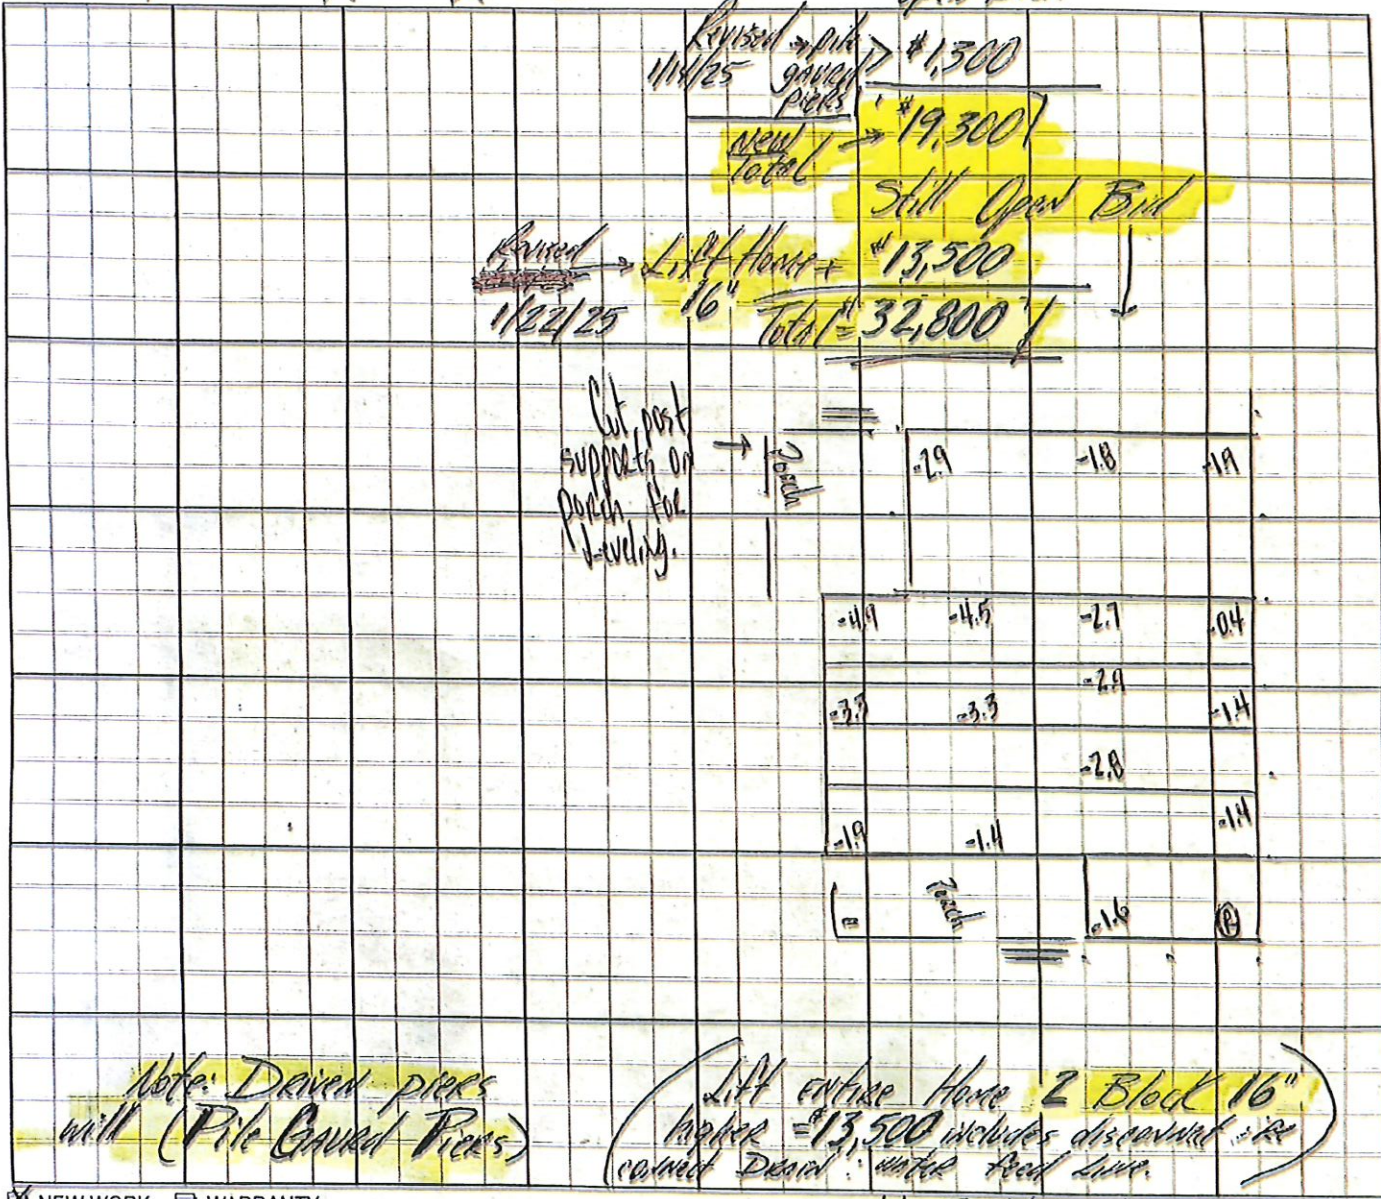 Revised → pile > $1,300
1/14/25 gaurd
piers
New → $19,300
Total
Still Open Bid
Revised → Lift Home + $13,500
1/22/25 16" Total = $32,800
Cut post →
supports on
porch for
Leveling.
Porch
-2.9 -1.8 -1.9
-4.9 -4.5 -2.7 -0.4
-2.9
-3.3 -3.3 -1.4
-2.8
-1.4
-1.9 -1.4
Porch
-1.6 R
Note: Driven piers
will (Pile Gaurd Piers)
(Lift Entire Home 2 Block 16"
higher = $13,500 includes disconnect : re
connect Drain : water feed Line.)
NEW WORK WARRANTY